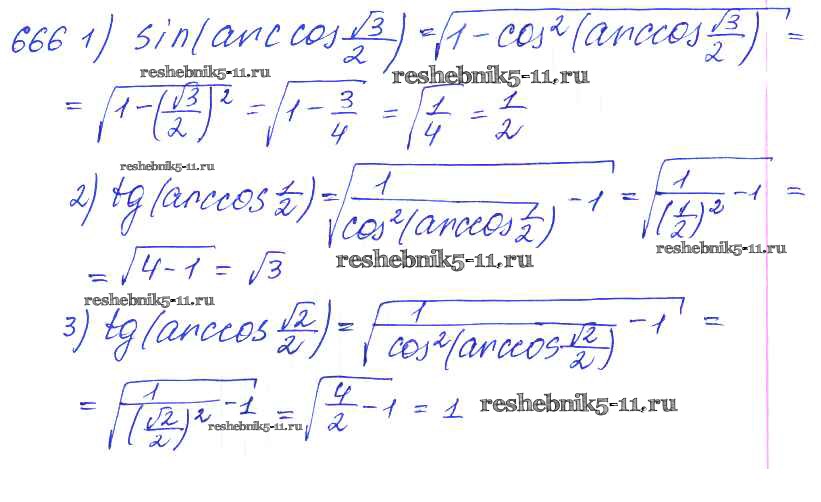 666 1) sin(arccos √3/2) = √(1 - cos²(arccos √3/2)) =
reshebnik5-11.ru reshebnik5-11.ru
= √(1 - (√3/2)²) = √(1 - 3/4) = √(1/4) = 1/2
reshebnik5-11.ru
2) tg(arccos 1/2) = √(1/cos²(arccos 1/2) - 1) = √(1/(1/2)² - 1) =
reshebnik5-11.ru reshebnik5-11.ru
= √(4 - 1) = √3
reshebnik5-11.ru
3) tg(arccos √2/2) = √(1/cos²(arccos √2/2) - 1) =
= √(1/(√2/2)² - 1) = √(4/2 - 1) = 1 reshebnik5-11.ru
reshebnik5-11.ru